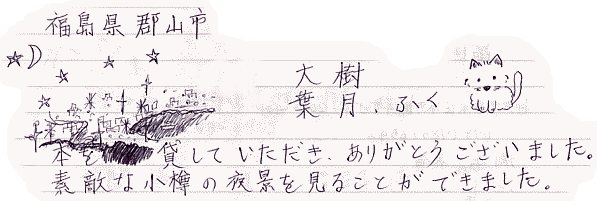 福島県郡山市
大樹
葉月、ふく
本を貸していただき、ありがとうございました。
素敵な小樽の夜景を見ることができました。